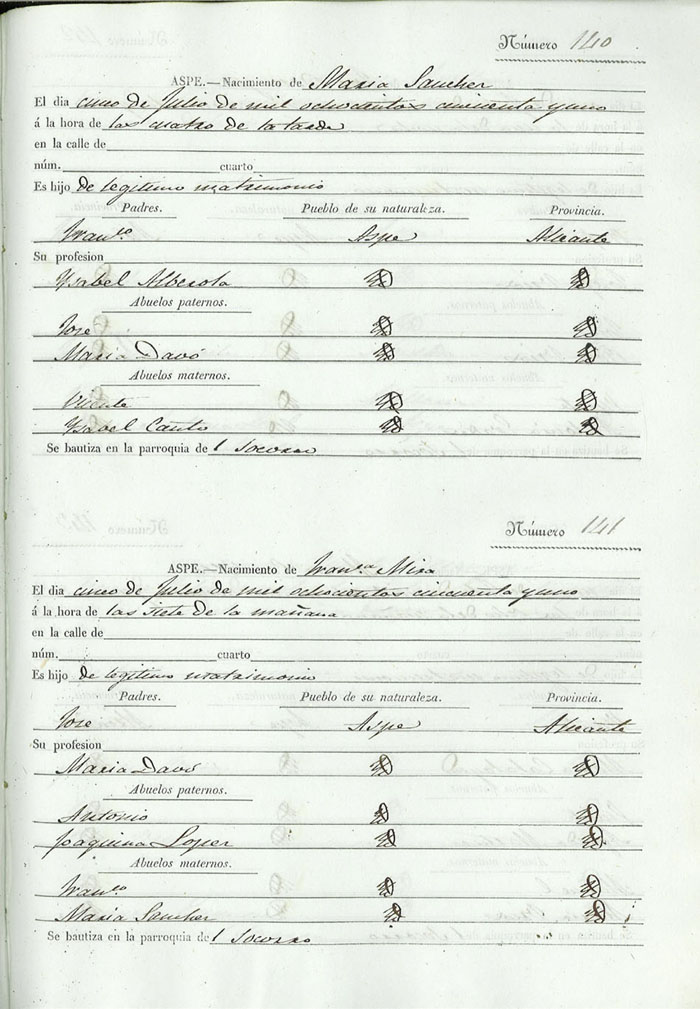 Número 140
ASPE.—Nacimiento de Maria Sanchez
El dia cinco de Julio de mil ochocientos cincuenta y uno
á la hora de las cuatro de la tarde
en la calle de
núm. cuarto
Es hijo de legitimo matrimonio
Padres. Pueblo de su naturaleza. Provincia.
Franco Aspe Alicante
Su profesion
Ysabel Alberola
Abuelos paternos.
Jose
Maria Davó
Abuelos maternos.
Vicente
Ysabel Canto
Se bautiza en la parroquia de l Socorro
Número 141
ASPE.—Nacimiento de Franca Mira
El dia cinco de Julio de mil ochocientos cincuenta y uno
á la hora de las siete de la mañana
en la calle de
núm. cuarto
Es hijo de legitimo matrimonio
Padres. Pueblo de su naturaleza. Provincia.
Jose Aspe Alicante
Su profesion
Maria Davó
Abuelos paternos.
Antonio
Joaquina Lopez
Abuelos maternos.
Franco
Maria Sanchez
Se bautiza en la parroquia de l Socorro